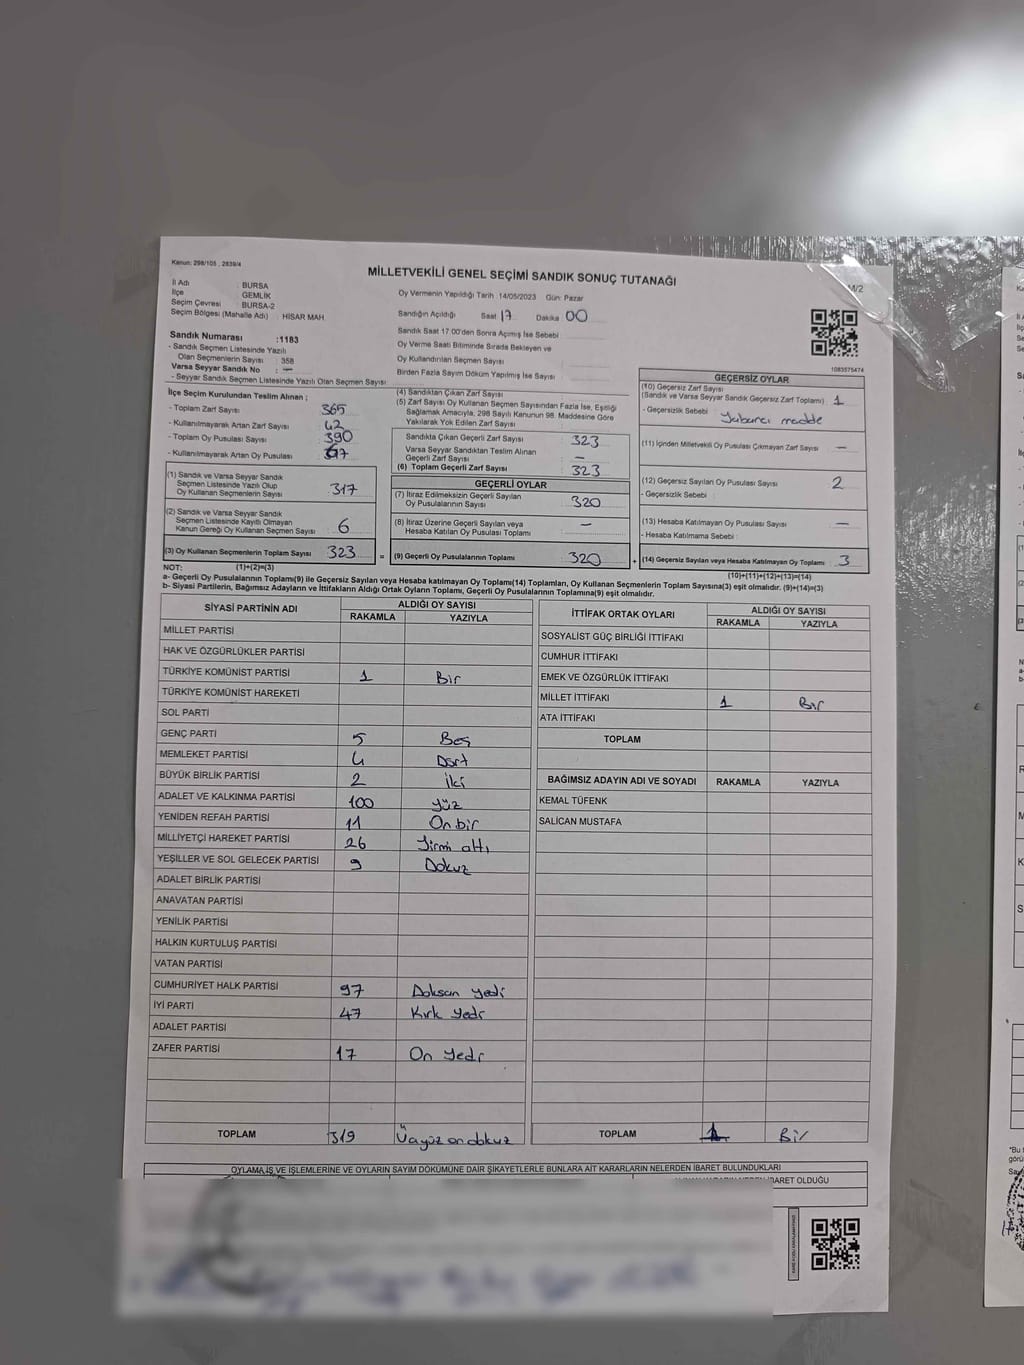 Kanun: 298/105 , 2839/4
MİLLETVEKİLİ GENEL SEÇİMİ SANDIK SONUÇ TUTANAĞI
M/2
İl Adı : BURSA
İlçe GEMLİK
Seçim Çevresi BURSA-2
Seçim Bölgesi (Mahalle Adı) : HİSAR MAH
Oy Vermenin Yapıldığı Tarih :14/05/2023 Gün: Pazar
Sandığın Açıldığı Saat 17 Dakika 00
Sandık Saat 17.00'den Sonra Açımış İse Sebebi
Oy Verme Saati Bitiminde Sırada Bekleyen ve
Oy Kullandırılan Seçmen Sayısı
Birden Fazla Sayım Döküm Yapılmış İse Sayısı
1083575474
Sandık Numarası :1183
- Sandık Seçmen Listesinde Yazılı
Olan Seçmenlerin Sayısı : 358
Varsa Seyyar Sandık No : —
- Seyyar Sandık Seçmen Listesinde Yazılı Olan Seçmen Sayısı
İlçe Seçim Kurulundan Teslim Alınan ;
- Toplam Zarf Sayısı 365
- Kullanılmayarak Artan Zarf Sayısı 42
- Toplam Oy Pusulası Sayısı 390
- Kullanılmayarak Artan Oy Pusulası
(1) Sandık ve Varsa Seyyar Sandık
Seçmen Listesinde Yazılı Olup
Oy Kullanan Seçmenlerin Sayısı 317
(2) Sandık ve Varsa Seyyar Sandık
Seçmen Listesinde Kayıtlı Olmayan
Kanun Gereği Oy Kullanan Seçmen Sayısı 6
(3) Oy Kullanan Seçmenlerin Toplam Sayısı 323
(4) Sandıktan Çıkan Zarf Sayısı
(5) Zarf Sayısı Oy Kullanan Seçmen Sayısından Fazla İse, Eşitliği
Sağlamak Amacıyla, 298 Sayılı Kanunun 98. Maddesine Göre
Yakılarak Yok Edilen Zarf Sayısı
Sandıkta Çıkan Geçerli Zarf Sayısı 323
Varsa Seyyar Sandıktan Teslim Alınan
Geçerli Zarf Sayısı —
(6) Toplam Geçerli Zarf Sayısı 323
GEÇERLİ OYLAR
(7) İtiraz Edilmeksizin Geçerli Sayılan
Oy Pusulalarının Sayısı 320
(8) İtiraz Üzerine Geçerli Sayılan veya
Hesaba Katılan Oy Pusulası Toplamı —
= (9) Geçerli Oy Pusulalarının Toplamı 320
GEÇERSİZ OYLAR
(10) Geçersiz Zarf Sayısı
(Sandık ve Varsa Seyyar Sandık Geçersiz Zarf Toplamı) 1
- Geçersizlik Sebebi : Yabancı madde
(11) İçinden Milletvekili Oy Pusulası Çıkmayan Zarf Sayısı —
(12) Geçersiz Sayılan Oy Pusulası Sayısı 2
- Geçersizlik Sebebi :
(13) Hesaba Katılmayan Oy Pusulası Sayısı —
- Hesaba Katılmama Sebebi :
+ (14) Geçersiz Sayılan veya Hesaba Katılmayan Oy Toplamı 3
NOT: (1)+(2)=(3)
(10)+(11)+(12)+(13)=(14)
a- Geçerli Oy Pusulalarının Toplamı(9) ile Geçersiz Sayılan veya Hesaba katılmayan Oy Toplamı(14) Toplamları, Oy Kullanan Seçmenlerin Toplam Sayısına(3) eşit olmalıdır. (9)+(14)=(3)
b- Siyasi Partilerin, Bağımsız Adayların ve İttifakların Aldığı Ortak Oyların Toplamı, Geçerli Oy Pusulalarının Toplamına(9) eşit olmalıdır.
SİYASİ PARTİNİN ADI ALDIĞI OY SAYISI
RAKAMLA YAZIYLA
MİLLET PARTİSİ
HAK VE ÖZGÜRLÜKLER PARTİSİ
TÜRKİYE KOMÜNİST PARTİSİ 1 Bir
TÜRKİYE KOMÜNİST HAREKETİ
SOL PARTİ
GENÇ PARTİ 5 Beş
MEMLEKET PARTİSİ 4 Dört
BÜYÜK BİRLİK PARTİSİ 2 İki
ADALET VE KALKINMA PARTİSİ 100 Yüz
YENİDEN REFAH PARTİSİ 11 On bir
MİLLİYETÇİ HAREKET PARTİSİ 26 Yirmi altı
YEŞİLLER VE SOL GELECEK PARTİSİ 9 Dokuz
ADALET BİRLİK PARTİSİ
ANAVATAN PARTİSİ
YENİLİK PARTİSİ
HALKIN KURTULUŞ PARTİSİ
VATAN PARTİSİ
CUMHURİYET HALK PARTİSİ 97 Doksan yedi
İYİ PARTİ 47 Kırk yedi
ADALET PARTİSİ
ZAFER PARTİSİ 17 On yedi
TOPLAM 319 Üçyüz on dokuz
İTTİFAK ORTAK OYLARI ALDIĞI OY SAYISI
RAKAMLA YAZIYLA
SOSYALİST GÜÇ BİRLİĞİ İTTİFAKI
CUMHUR İTTİFAKI
EMEK VE ÖZGÜRLÜK İTTİFAKI
MİLLET İTTİFAKI 1 Bir
ATA İTTİFAKI
TOPLAM
BAĞIMSIZ ADAYIN ADI VE SOYADI RAKAMLA YAZIYLA
KEMAL TÜFENK
SALİCAN MUSTAFA
TOPLAM 1 Bir
OYLAMA İŞ VE İŞLEMLERİNE VE OYLARIN SAYIM DÖKÜMÜNE DAİR ŞİKAYETLERLE BUNLARA AİT KARARLARIN NELERDEN İBARET BULUNDUKLARI
İBARET OLDUĞU